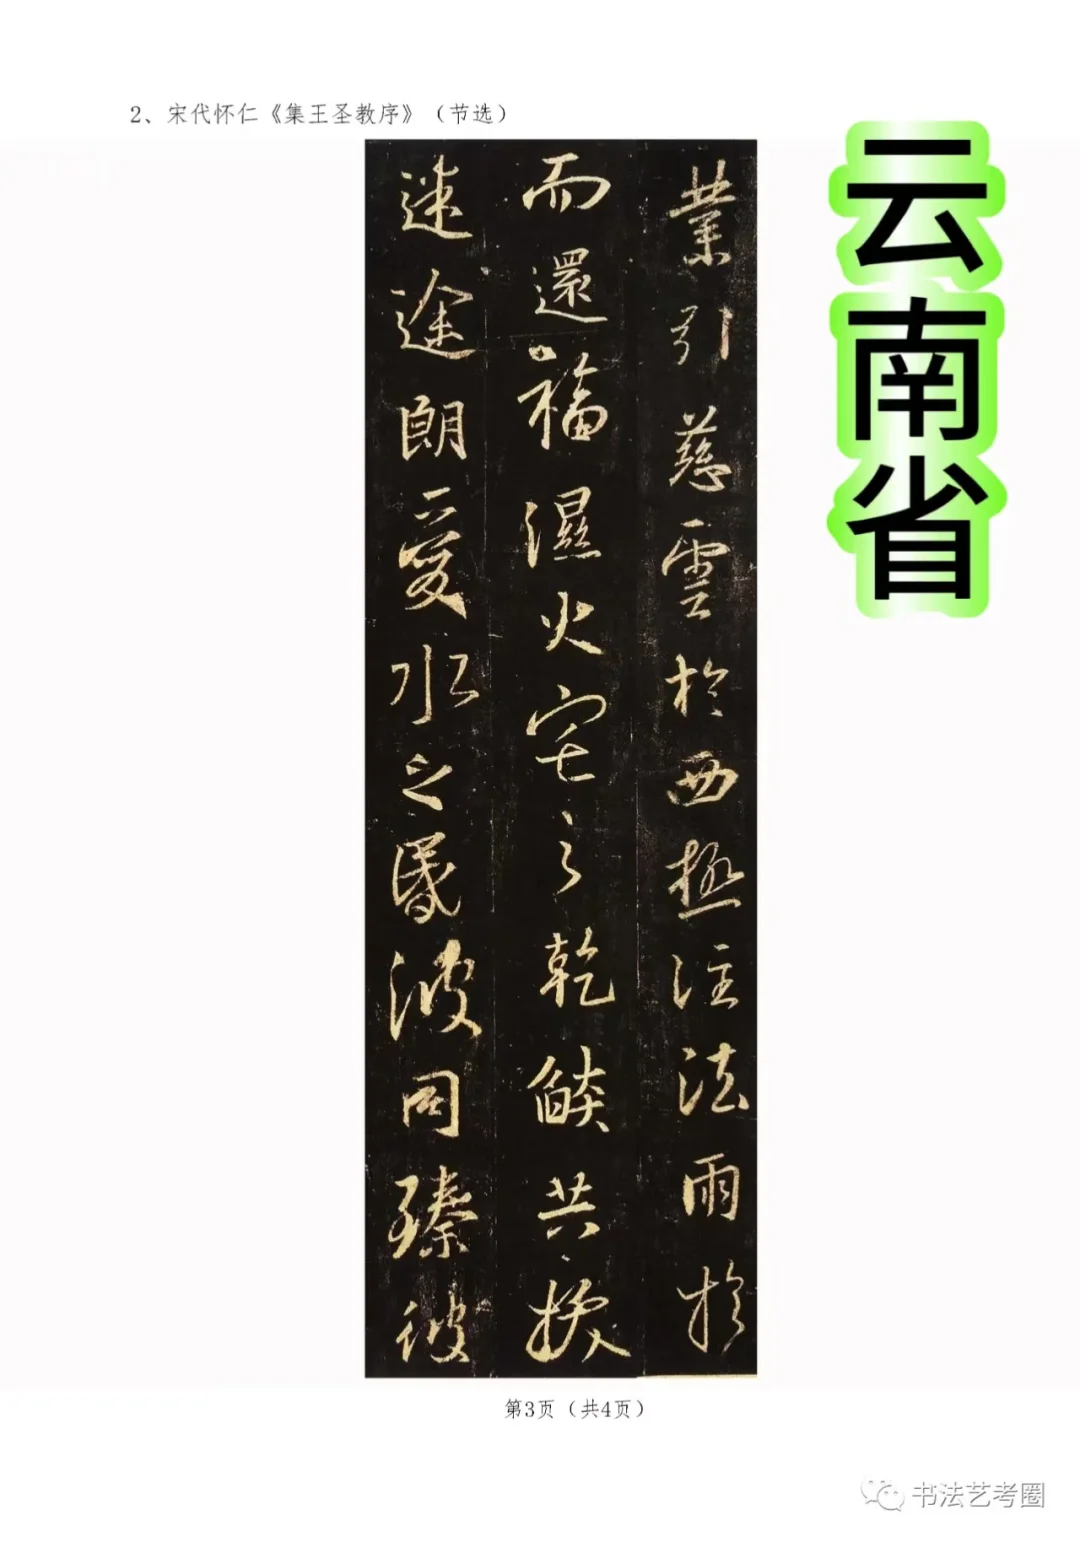 2、宋代怀仁《集王圣教序》（节选）
云南省
業引慈雲於西極注法雨於
而還福濕火宅之乾𦦨共拔
迷途朗愛水之昏波同臻彼
第3页（共4页）
书法艺考圈